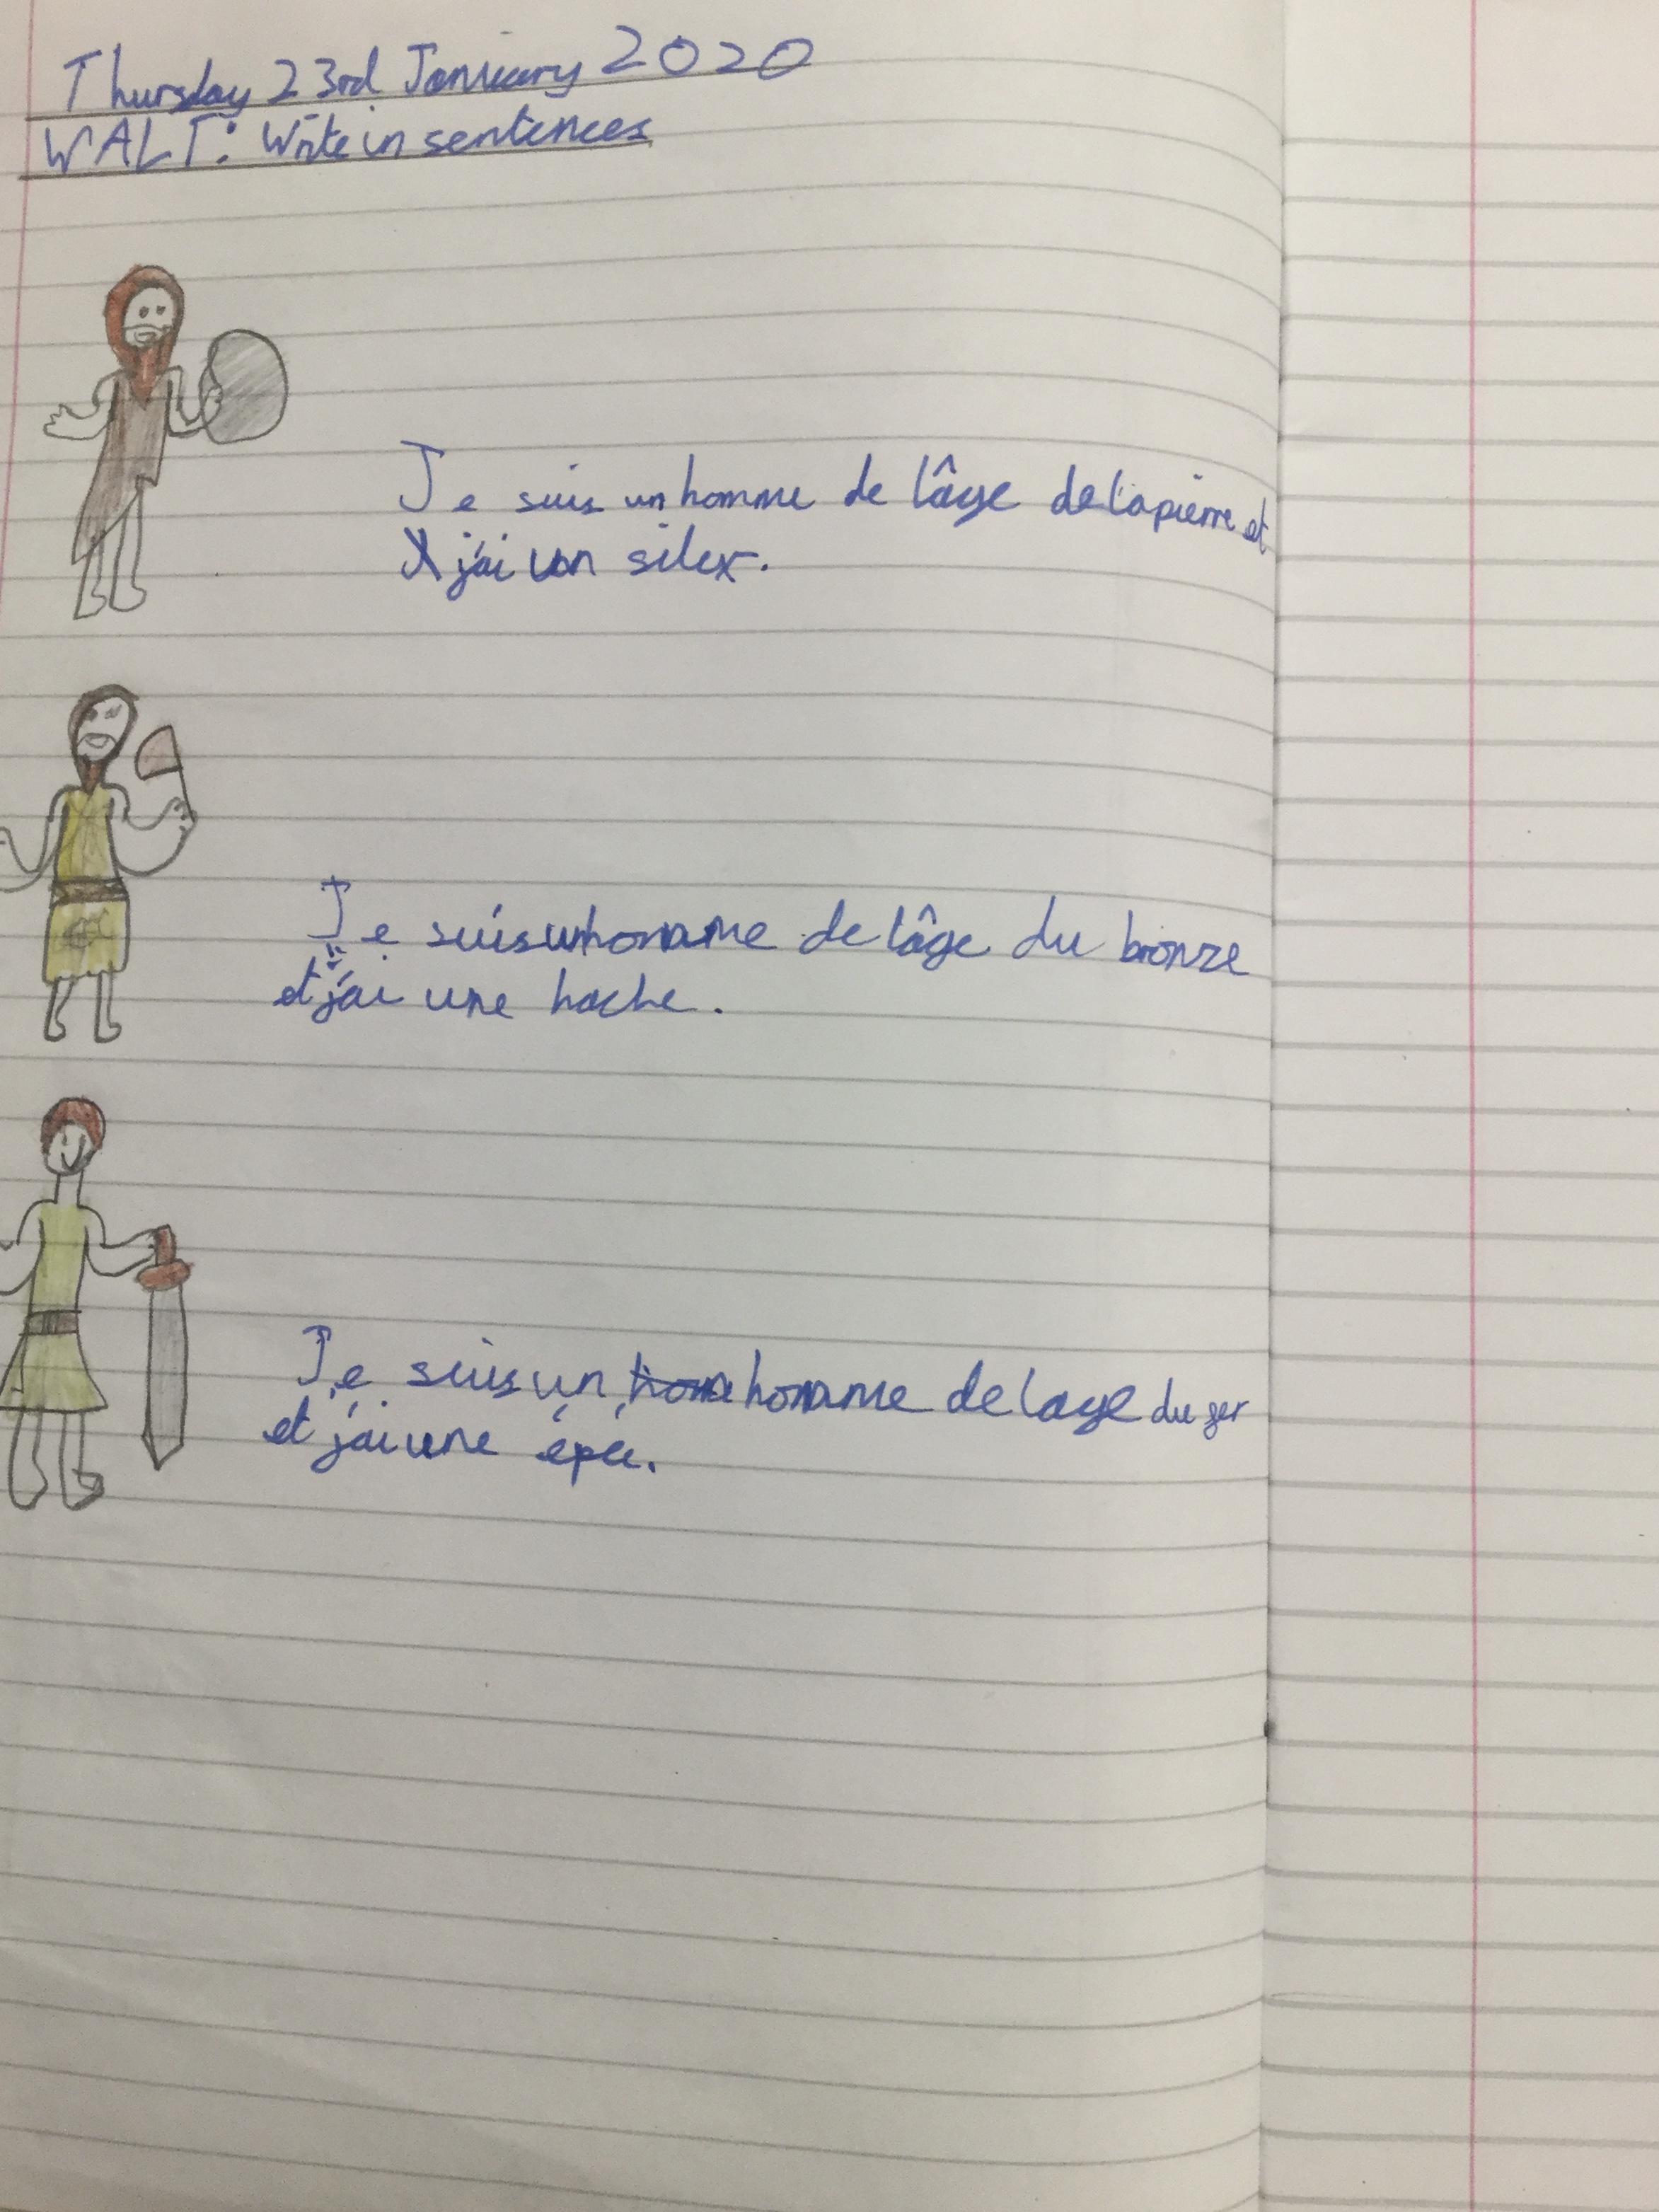 Thursday 23rd January 2020
WALT: Write in sentences
Je suis un homme de l'âge de la pierre et
j'ai un silex.
Je suis un homme de l'âge du bronze
et j'ai une hache.
Je suis un homme de l'age du fer
et j'ai une épée.